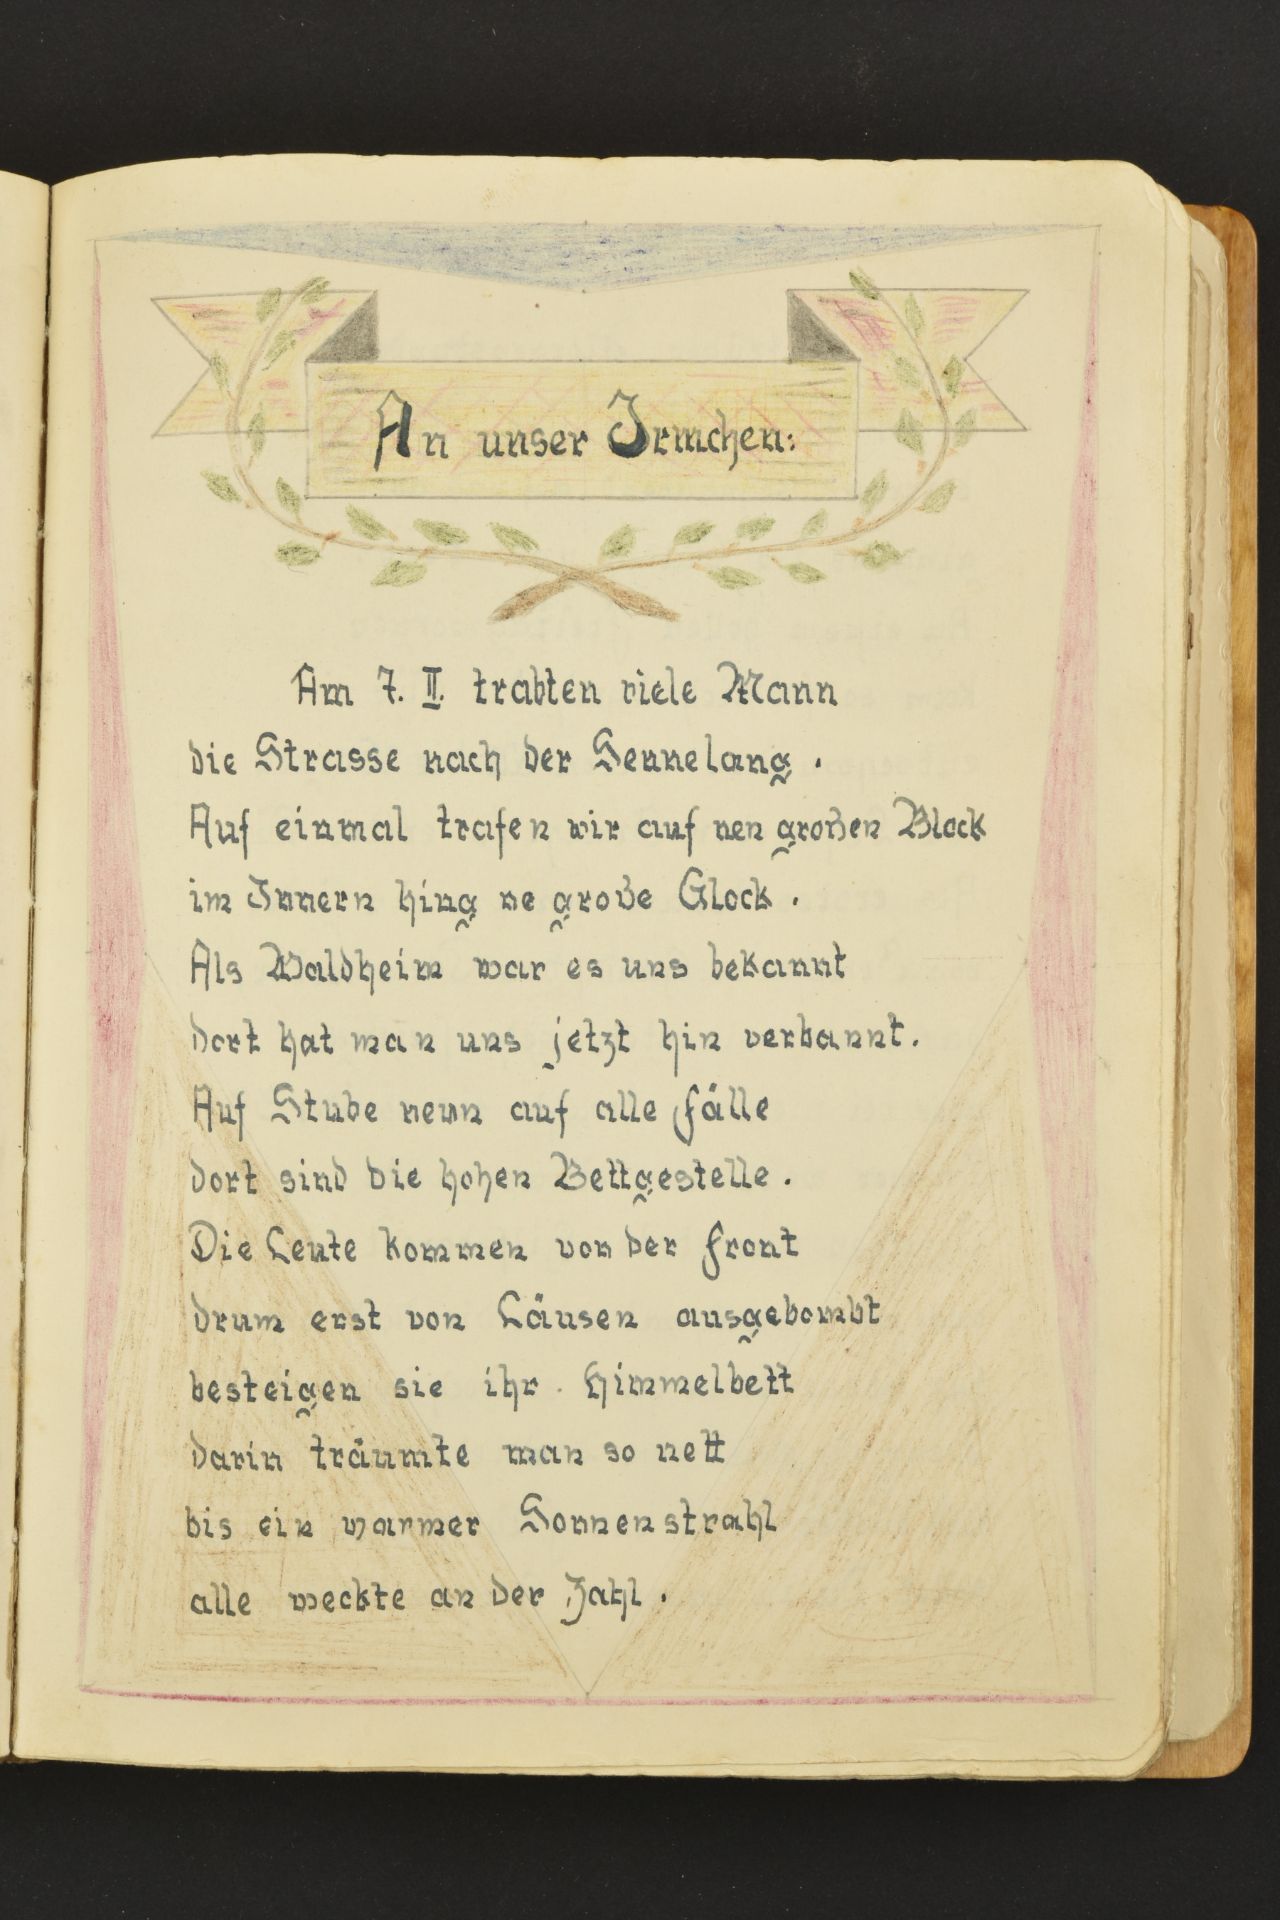 An unser Irmchen:
Am 7. II. trabten viele Mann
die Strasse nach der Sennelang.
Auf einmal trafen wir auf nen großen Block
im Innern hing ne große Glock.
Als Waldheim war es uns bekannt
dort hat man uns jetzt hin verbannt.
Auf Stube neun auf alle Fälle
dort sind die hohen Bettgestelle.
Die Leute kommen von der Front
drum erst von Läusen ausgebombt
besteigen sie ihr Himmelbett
darin träumte man so nett
bis ein warmer Sonnenstrahl
alle weckte an der Zahl.